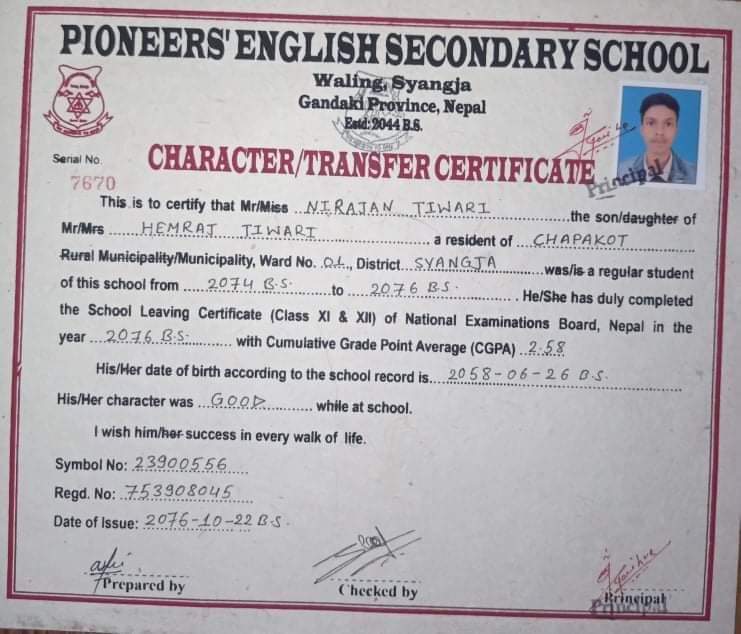 PIONEERS' ENGLISH SECONDARY SCHOOL
Waling, Syangja
Gandaki Province, Nepal
Estd: 2044 B.S.
Serial No.
7670
CHARACTER/TRANSFER CERTIFICATE
Principal
This is to certify that Mr/Miss NIRAJAN TIWARI the son/daughter of
Mr/Mrs HEMRAJ TIWARI a resident of CHAPAKOT
Rural Municipality/Municipality, Ward No. 01, District SYANGJA was/is a regular student
of this school from 2074 B.S. to 2076 B.S. He/She has duly completed
the School Leaving Certificate (Class XI & XII) of National Examinations Board, Nepal in the
year 2076 B.S. with Cumulative Grade Point Average (CGPA) 2.58
His/Her date of birth according to the school record is 2058-06-26 B.S.
His/Her character was GOOD while at school.
I wish him/her success in every walk of life.
Symbol No: 23900556
Regd. No: 753908045
Date of Issue: 2076-10-22 B.S.
Prepared by
Checked by
Principal
Principal